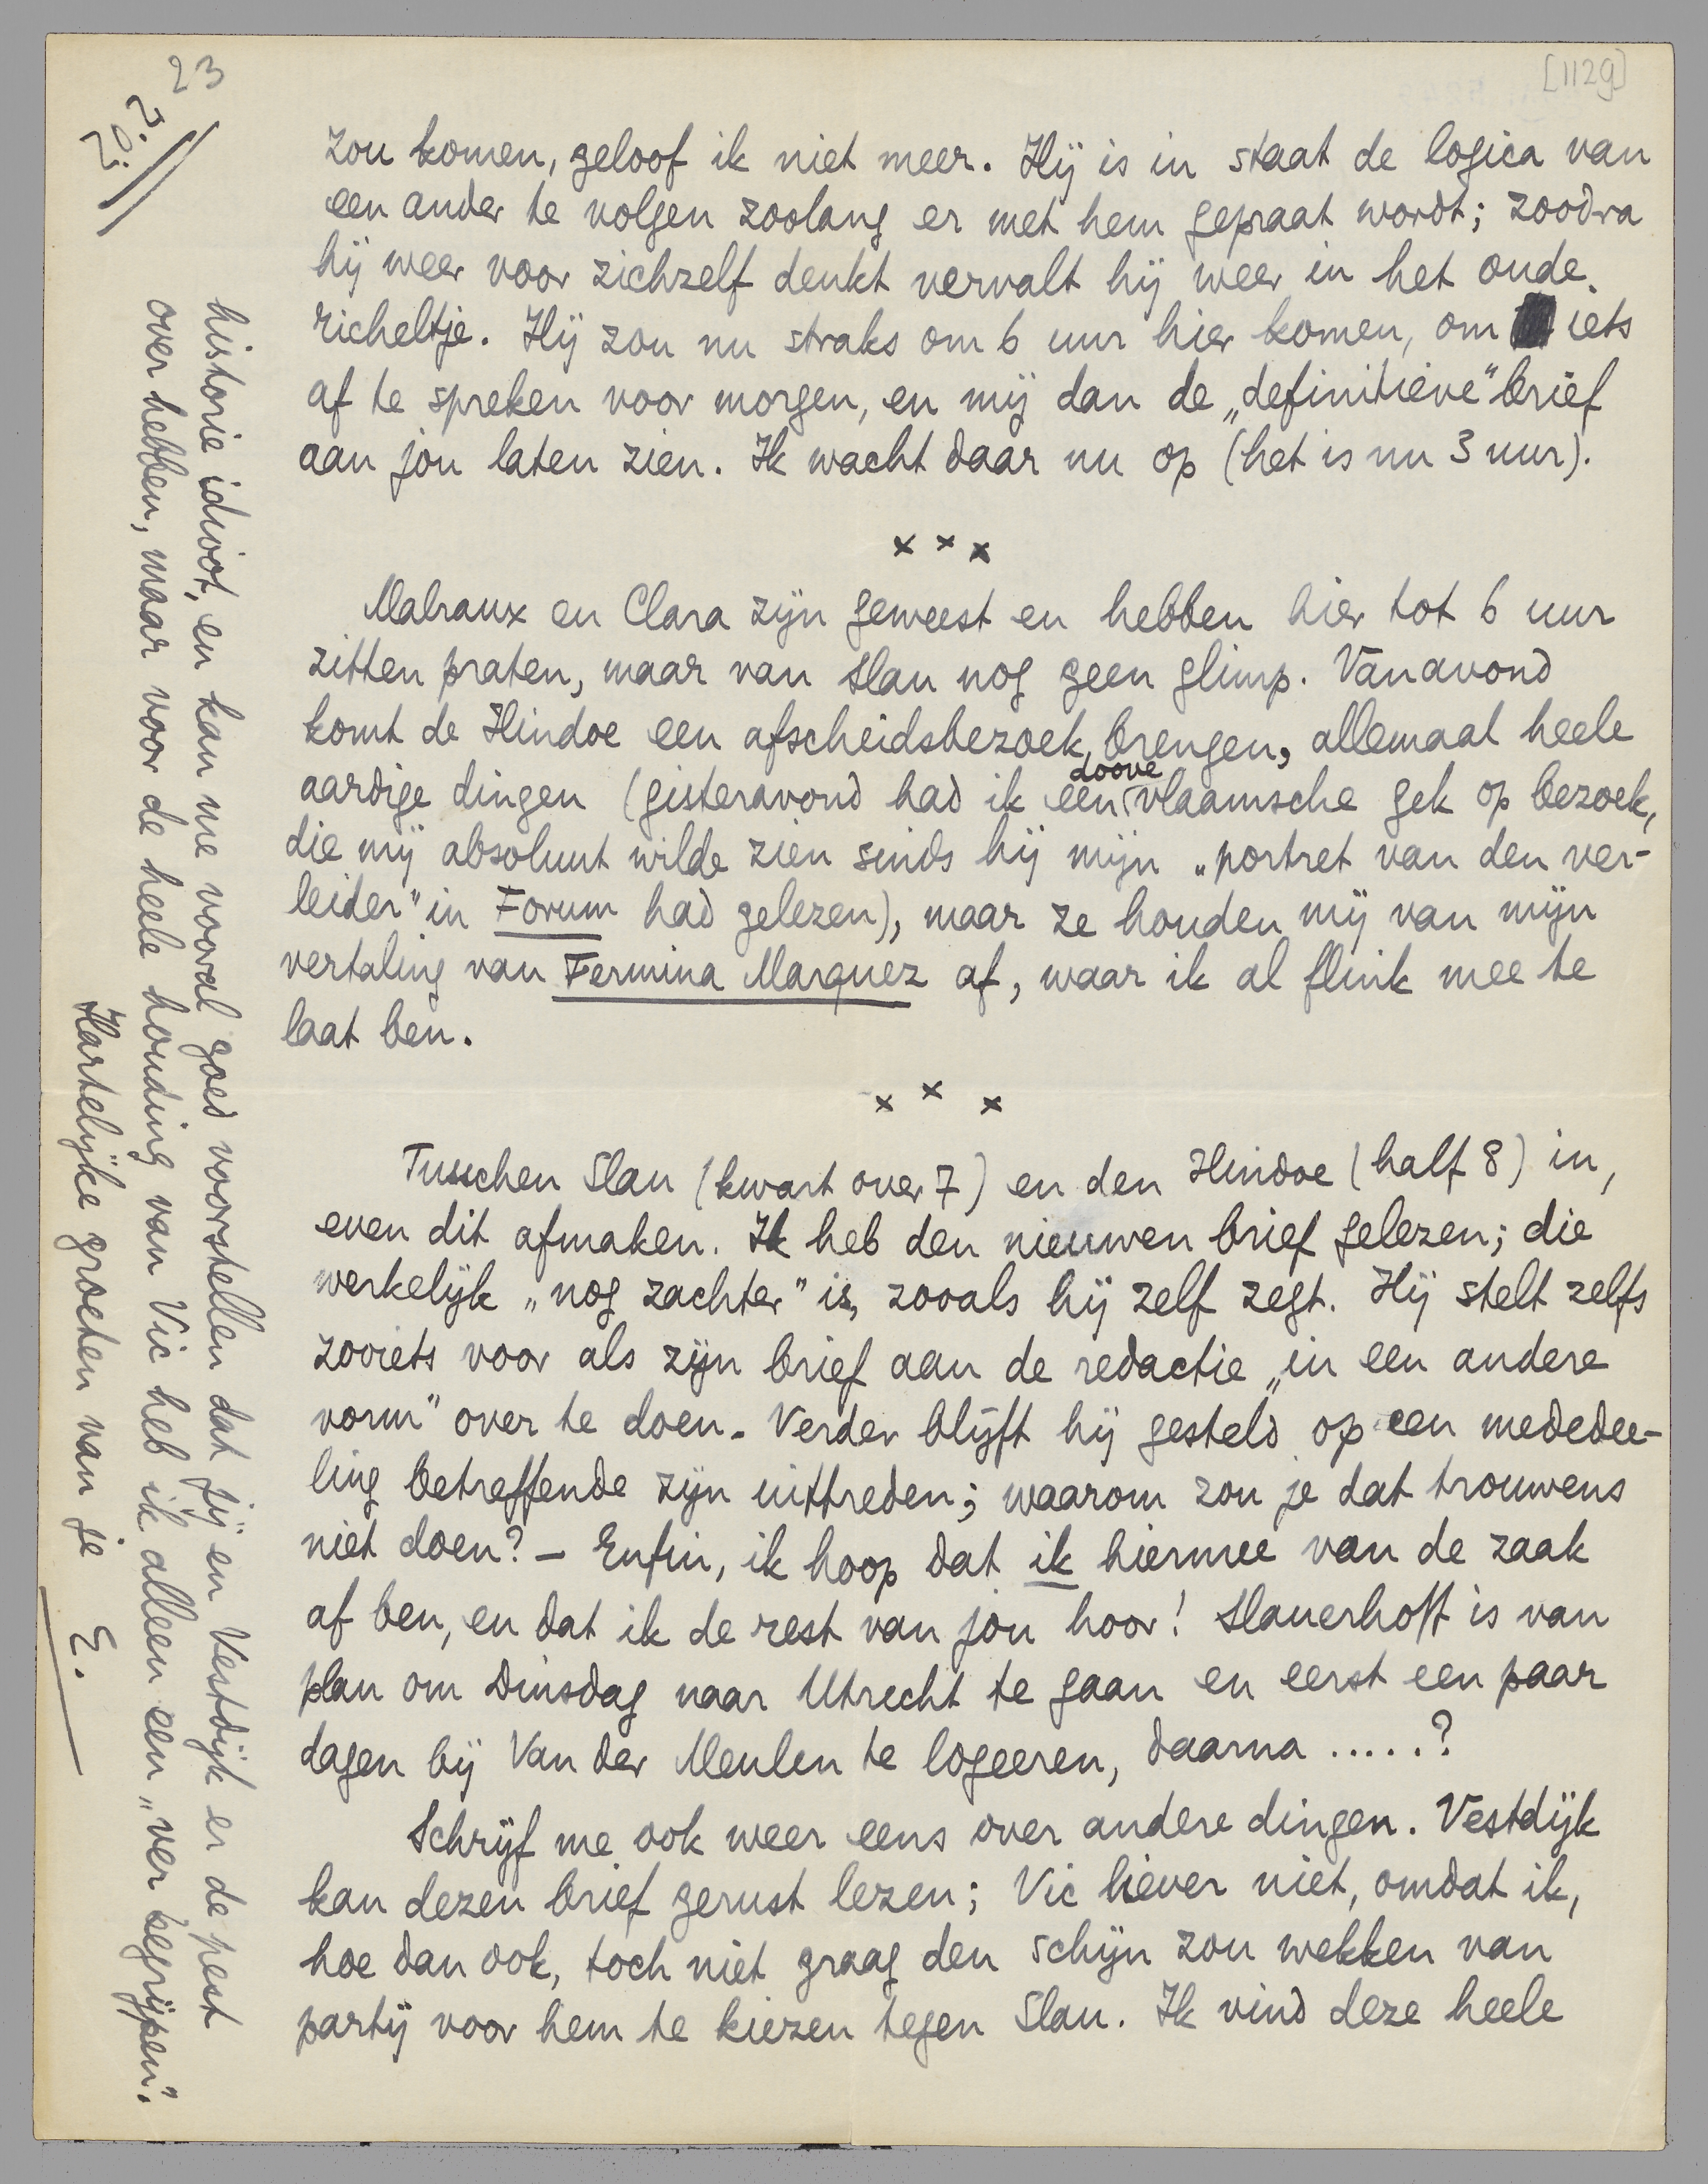 23
[1129]
zou komen, geloof ik niet meer. Hij is in staat de logica van
een ander te volgen zoolang er met hem gepraat wordt; zoodra
hij weer voor zichzelf denkt vervalt hij weer in het oude
richeltje. Hij zou nu straks om 6 uur hier komen, om iets
af te spreken voor morgen, en mij dan de „definitieve" brief
aan jou laten zien. Ik wacht daar nu op (het is nu 3 uur).
x x x
Malraux en Clara zijn geweest en hebben hier tot 6 uur
zitten praten, maar van Slau nog geen glimp. Vanavond
komt de Hindoe een afscheidsbezoek brengen, allemaal heele
aardige dingen (gisteravond had ik een doove vlaamsche gek op bezoek,
die mij absoluut wilde zien sinds hij mijn „portret van den ver-
leider" in Forum had gelezen), maar ze houden mij van mijn
vertaling van Fermina Marquez af, waar ik al flink mee te
laat ben.
x x x
Tusschen Slau (kwart over 7) en den Hindoe (half 8) in,
even dit afmaken. Ik heb den nieuwen brief gelezen; die
werkelijk „nog zachter" is, zooals hij zelf zegt. Hij stelt zelfs
zooiets voor als zijn brief aan de redactie „in een andere
vorm" over te doen. Verder blijft hij gesteld op een mededee-
ling betreffende zijn uittreden; waarom zou je dat trouwens
niet doen? — Enfin, ik hoop dat ik hiermee van de zaak
af ben, en dat ik de rest van jou hoor! Slauerhoff is van
plan om Dinsdag naar Utrecht te gaan en eerst een paar
dagen bij Van der Meulen te logeeren, daarna .....?
Schrijf me ook weer eens over andere dingen. Vestdijk
kan dezen brief gerust lezen; Vic liever niet, omdat ik,
hoe dan ook, toch niet graag den schijn zou wekken van
partij voor hem te kiezen tegen Slau. Ik vind deze heele
historie idioot, en kan me vooral goed voorstellen dat jij en Vestdijk er de pest
over hebben, maar voor de heele houding van Vic heb ik alleen een „ver begrijpen".
Hartelijke groeten van je
E.